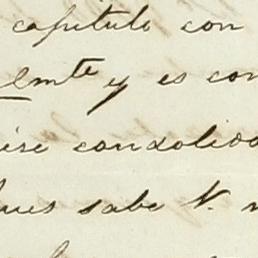 capitulo con
lmte y es con
irse condolido
ues sabe V.